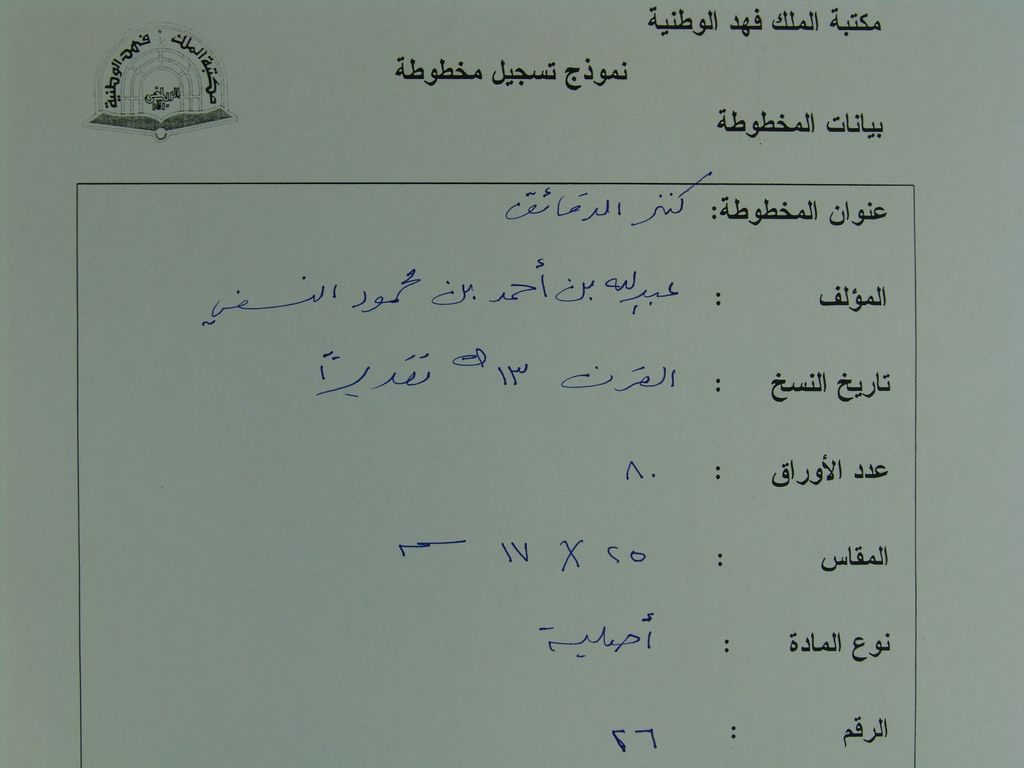 مكتبة الملك فهد الوطنية
مكتبة الملك فهد الوطنية
الرياض
نموذج تسجيل مخطوطة
بيانات المخطوطة
عنوان المخطوطة: كنز الدقائق
المؤلف : عبدالله بن أحمد بن محمود النسفي
تاريخ النسخ : القرن ١٣ هـ تقديراً
عدد الأوراق : ٨٠
المقاس : ٢٥ X ١٧ سم
نوع المادة : أصلية
الرقم : ٢٦